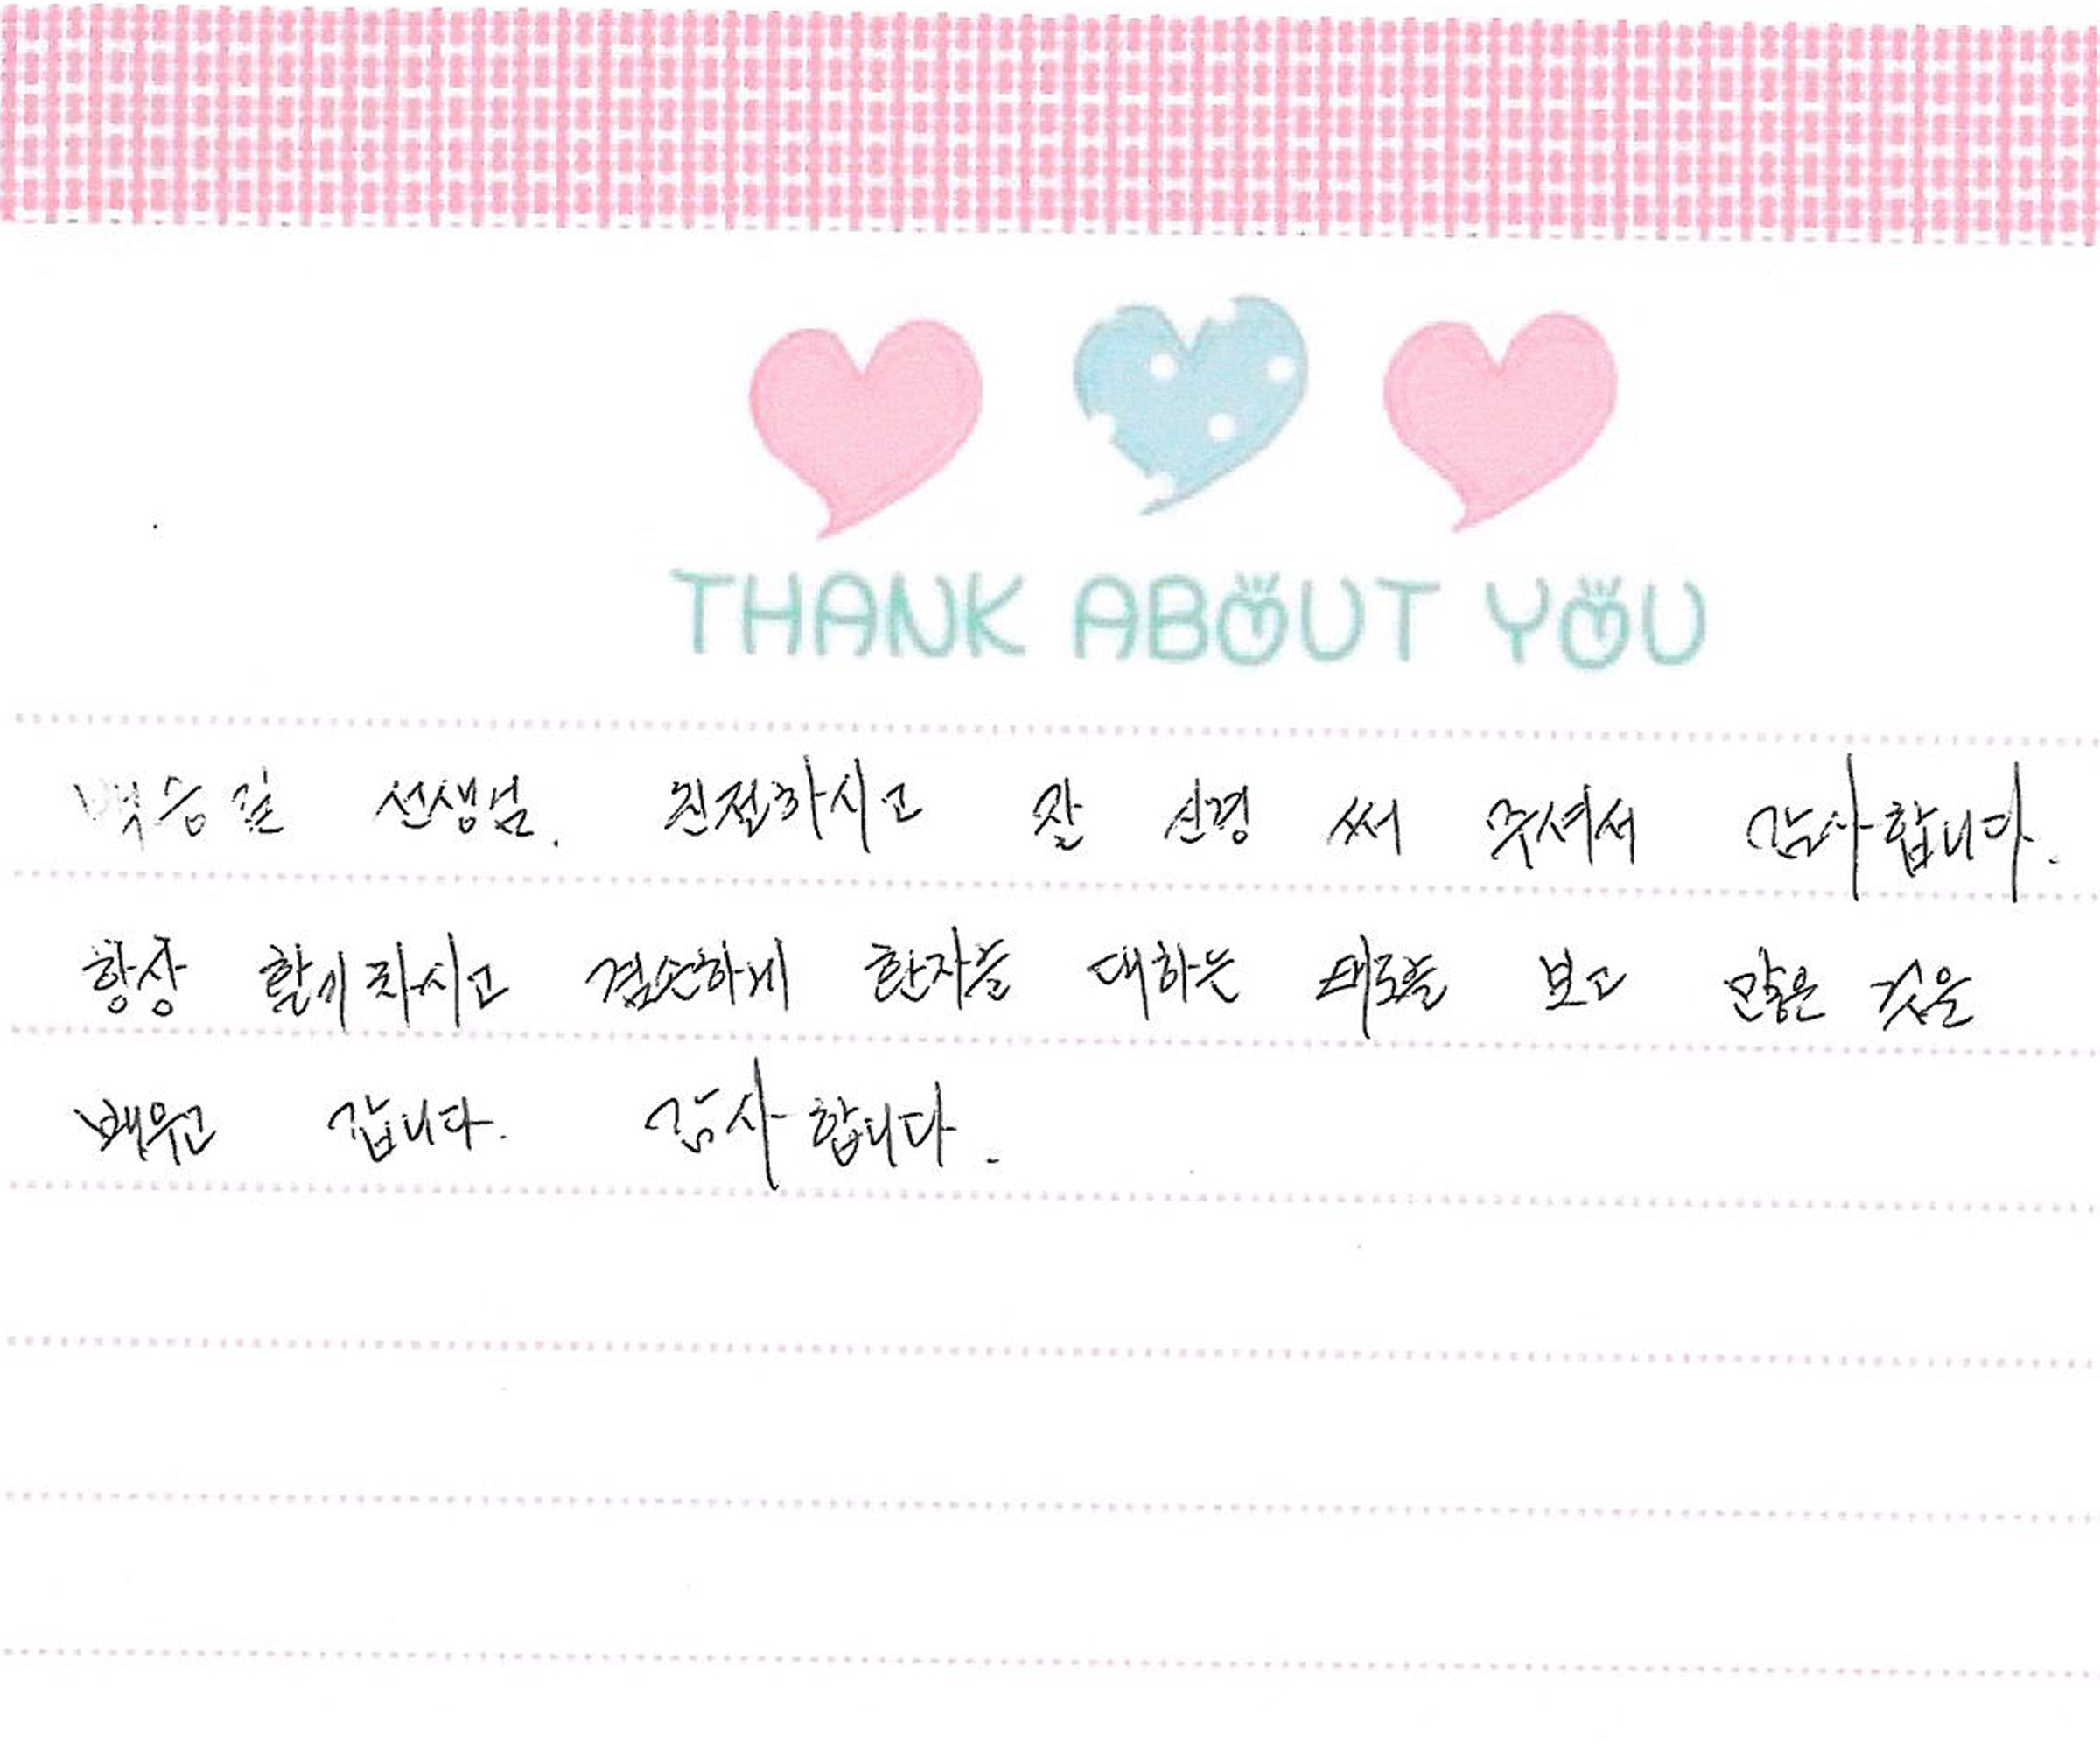 THANK ABOUT YOU
백승길 선생님. 친절하시고 잘 신경 써 주셔서 감사합니다.
항상 활기차시고 겸손하게 환자를 대하는 태도를 보고 많은 것을
배우고 갑니다. 감사합니다.